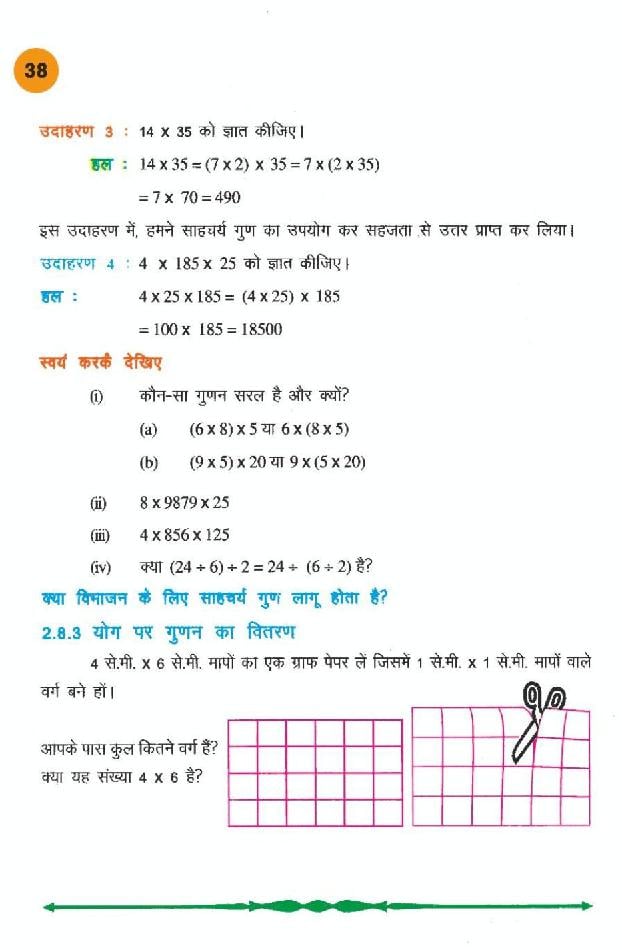 38
उदाहरण 3 : 14 x 35 को ज्ञात कीजिए।
हल : 14 x 35 = (7 x 2) x 35 = 7 x (2 x 35)
= 7 x 70 = 490
इस उदाहरण में, हमने साहचर्य गुण का उपयोग कर सहजता से उत्तर प्राप्त कर लिया।
उदाहरण 4 : 4 x 185 x 25 को ज्ञात कीजिए।
हल : 4 x 25 x 185 = (4 x 25) x 185
= 100 x 185 = 18500
स्वयं करकें देखिए
(i) कौन-सा गुणन सरल है और क्यों?
(a) (6 x 8) x 5 या 6 x (8 x 5)
(b) (9 x 5) x 20 या 9 x (5 x 20)
(ii) 8 x 9879 x 25
(iii) 4 x 856 x 125
(iv) क्या (24 ÷ 6) ÷ 2 = 24 ÷ (6 ÷ 2) है?
क्या विभाजन के लिए साहचर्य गुण लागू होता है?
2.8.3 योग पर गुणन का वितरण
4 से.मी. x 6 से.मी. मापों का एक ग्राफ पेपर लें जिसमें 1 से.मी. x 1 से.मी. मापों वाले
वर्ग बने हों।
आपके पास कुल कितने वर्ग हैं?
क्या यह संख्या 4 x 6 है?